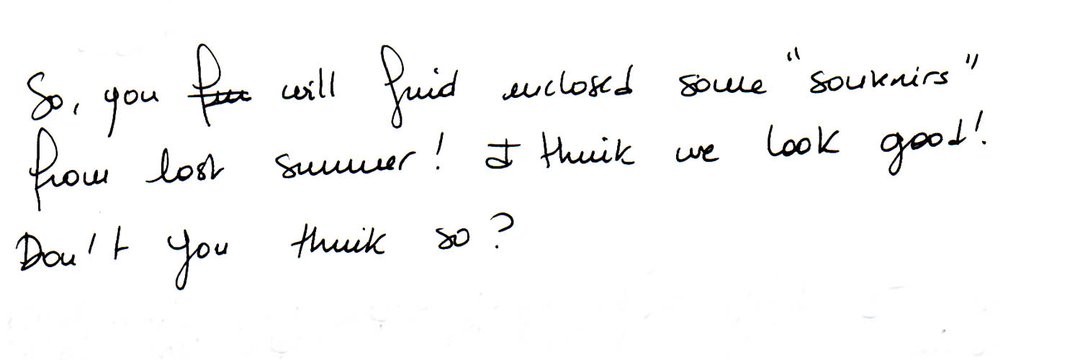 So, you will find enclosed some "souvenirs"
from last summer! I think we look good!
Don't you think so?